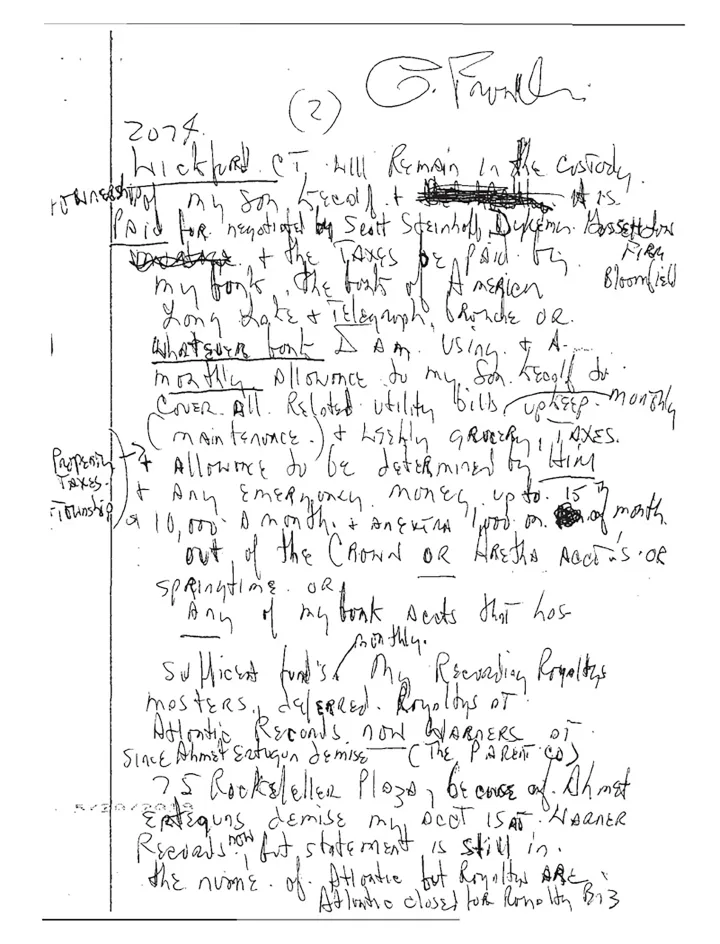 G. Franklin
(2)
2074.
Wickford CT, will Remain in the custody
+ ownership of my Son Kecalf + it is
PAID for negotiated by Scott Steinhoff, Dykema Gossett Law
Firm
Bloomfield
+ the TAXES be PAID by
my bank, the bank of America
Long Lake + Telegraph, Branche OR
whatever bank I Am Using + A
monthly Allowance to my Son Kecalf to
Cover All Related utility bills, upkeep monthly
(maintenance.) + weekly grocery, TAXES.
Property
TAXES.
Township
+ Allowance to be determined by Him
+ Any Emergency money up to
10,000 A month. + an extra 1,000 on 15th of month
out of the CROWN OR Aretha Acct's OR
springtime OR
Any of my bank Accts that has
monthly.
Sufficent fund's. My Recording Royaltys
masters, deferred. Royaltys at
Atlantic Records now Warners at
since Ahmet Ertegun demise (The PARENT CO)
75 Rockefeller Plaza, because of Ahmet
5/20/2019
Erteguns demise my acct is at WARNER
Records now, but statement is still in
the name of Atlantic but Royaltys ARE
Atlantic closed for Royalty Biz